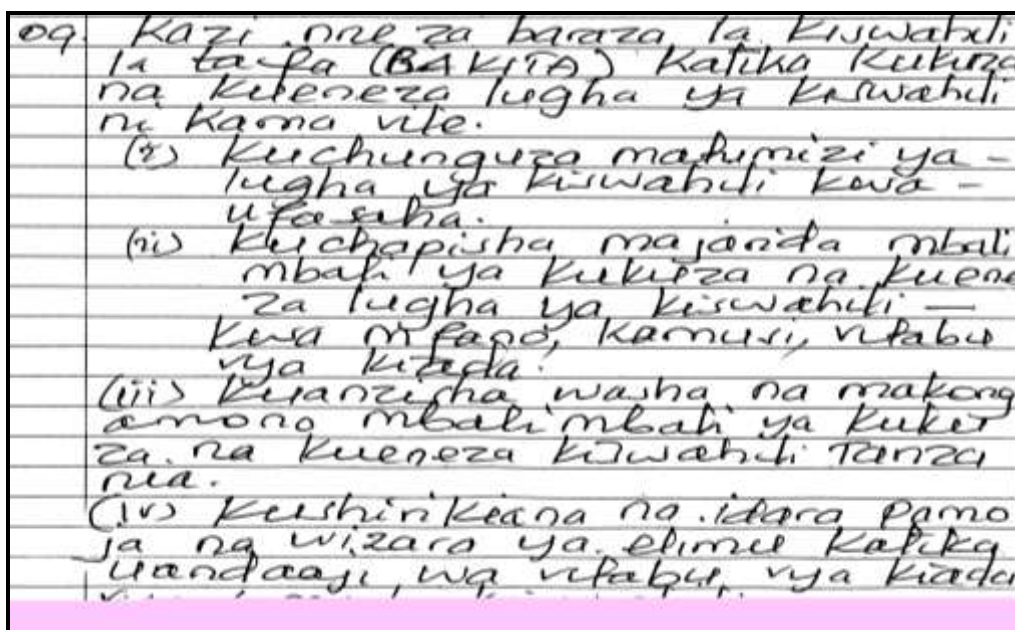 09. Kazi nne za baraza la Kiswahili
la taifa (BAKITA) Katika Kukuza
na Kueneza lugha ya Kiswahili
ni Kama vile.
(i) Kuchunguza matumizi ya -
lugha ya Kiswahili kwa -
ufasaha.
(ii) Kuchapisha majarida mbali
mbali ya Kukuza na Kuene
za lugha ya Kiswahili —
kwa mfano, Kamusi, vitabu
vya kiada.
(iii) Kuanzisha washa na makong
amano mbalimbali ya Kuku
za na Kueneza Kiswahili Tanza
nia.
(iv) Kushirikiana na idara pamo
ja na wizara ya elimu katika
uandaaji wa vitabu vya kiada